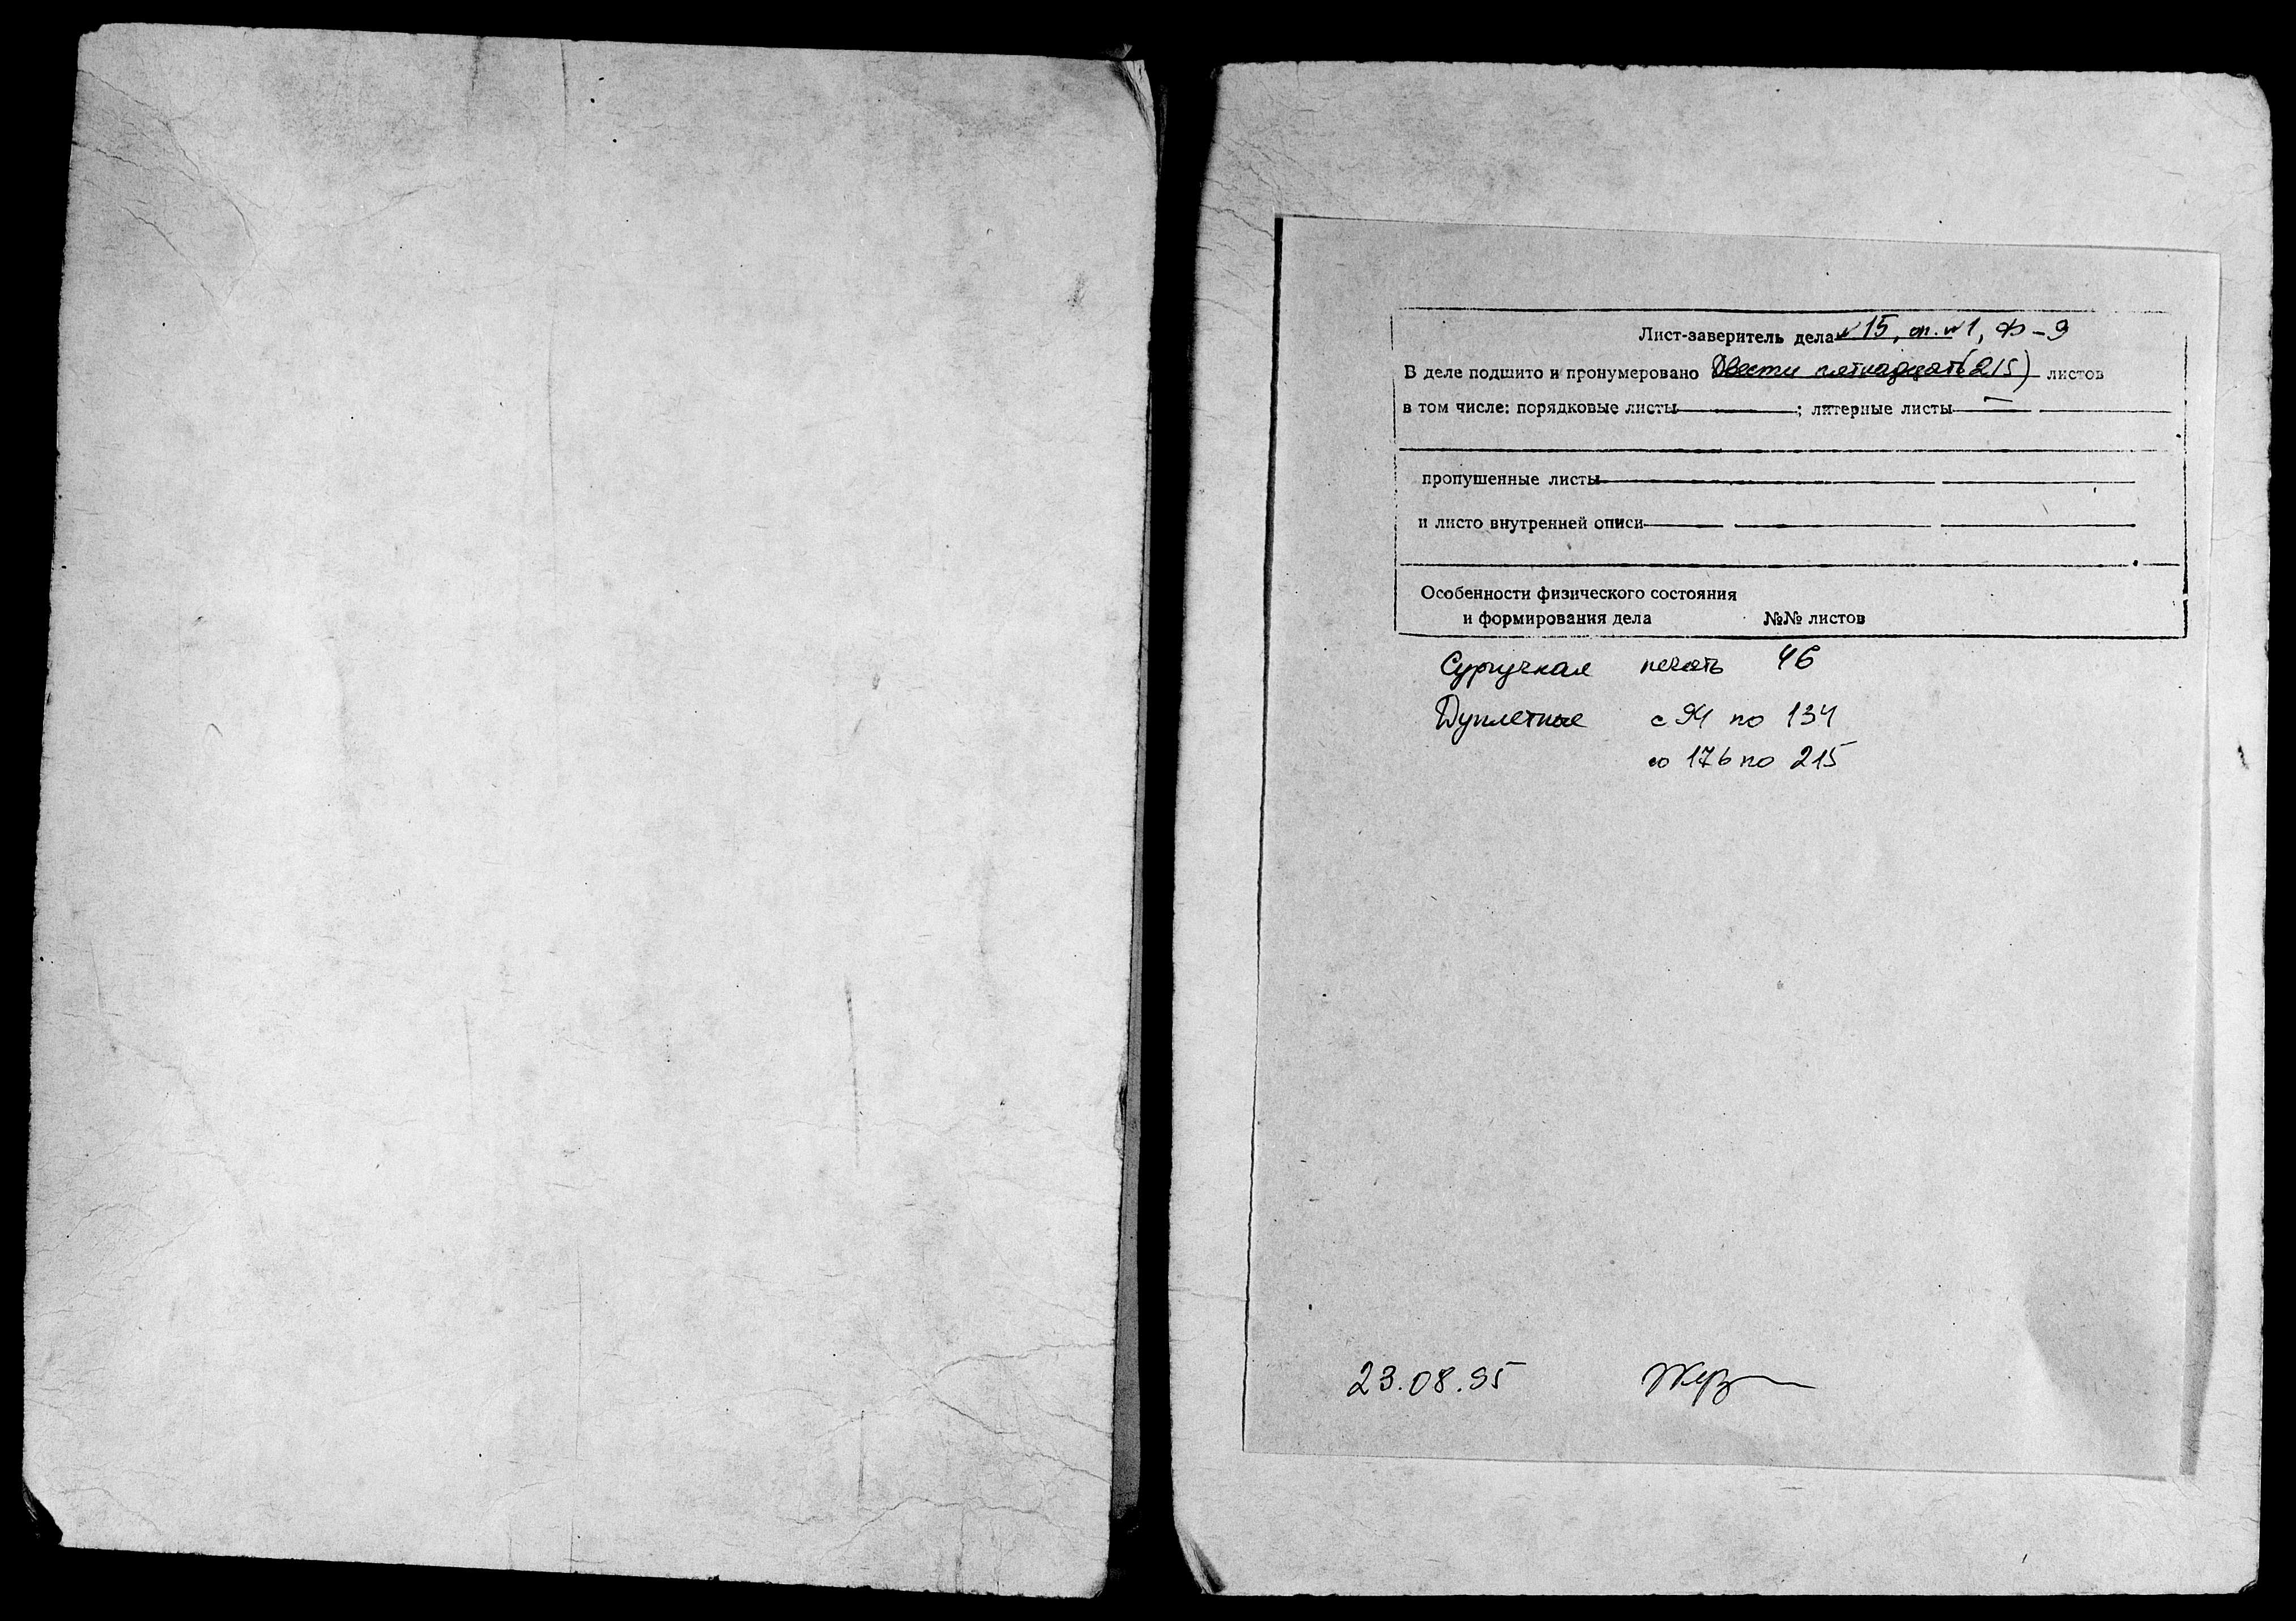 Лист-заверитель дела № 15, оп. № 1, Ф-9
В деле подшито и пронумеровано Двести пятнадцать (215) листов
в том числе: порядковые листы ; литерные листы —
пропушенные листы
и листо внутренней описи
Особенности физического состояния
и формирования дела №№ листов
Сургучная печать 46
Дуплетные с 94 по 134
со 176 по 215
23.08.95